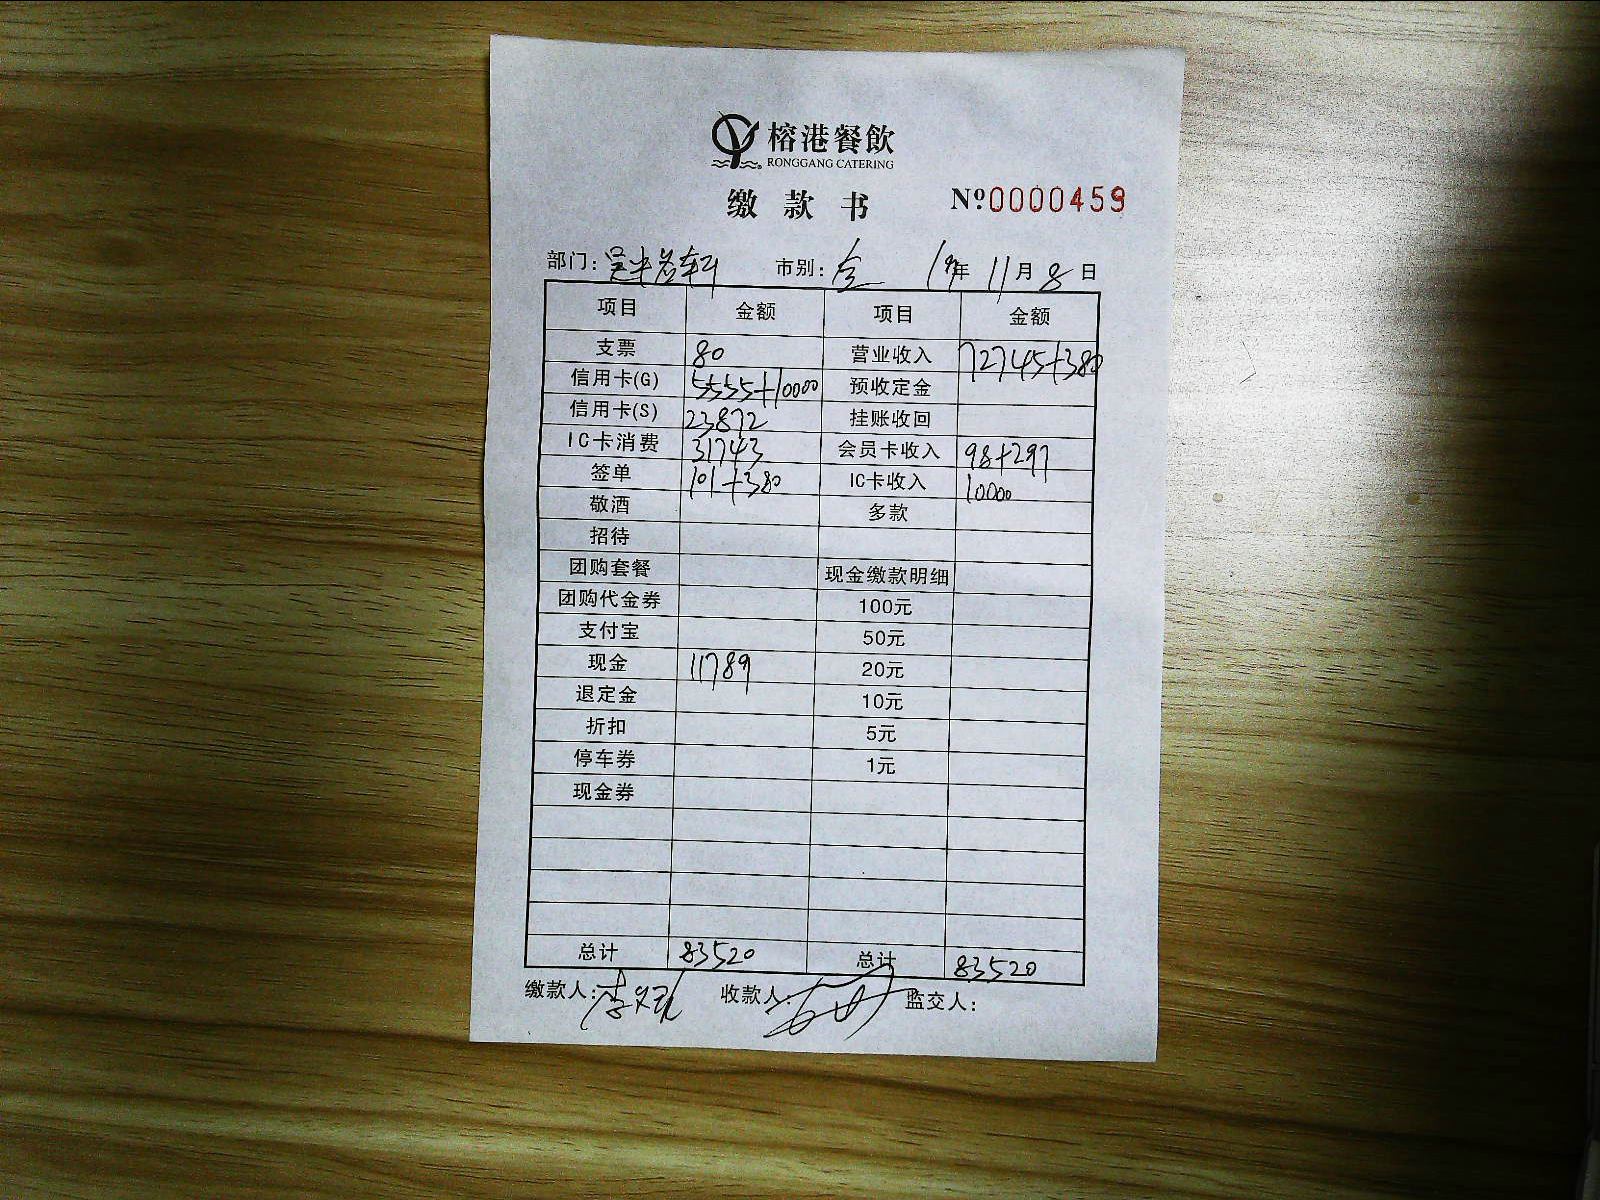 榕港餐飲
RONGGANG CATERING
缴款书 Nº0000459
部门: 市别:全 19年 11月 8日
项目 金额 项目 金额
支票 80 营业收入 72745+380
信用卡(G) 5555+10000 预收定金
信用卡(S) 23872 挂账收回
IC卡消费 31743 会员卡收入 98+297
签单 101+380 IC卡收入 10000
敬酒 多款
招待
团购套餐 现金缴款明细
团购代金券 100元
支付宝 50元
现金 11789 20元
退定金 10元
折扣 5元
停车券 1元
现金券
总计 83520 总计 83520
缴款人: 收款人: 监交人: